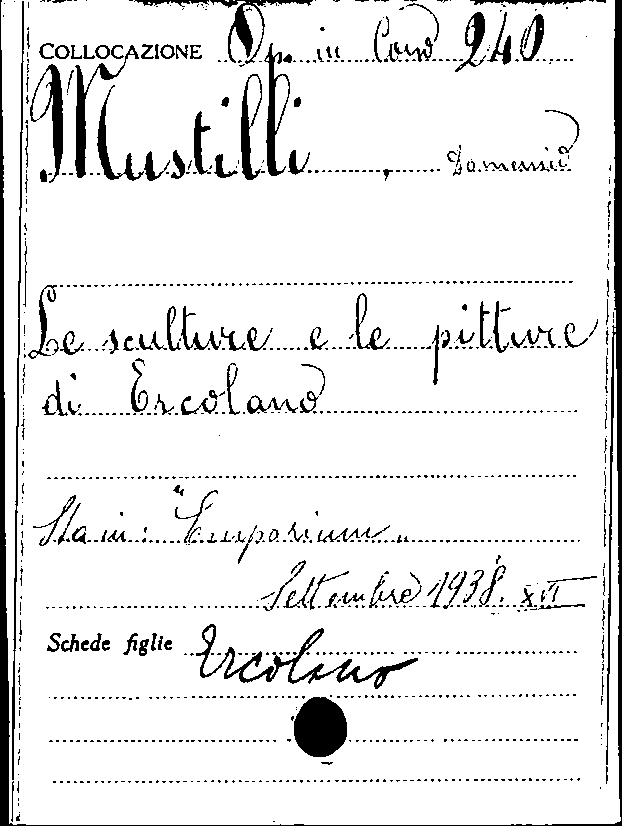 COLLOCAZIONE Op. in Cons 240
Mustilli, Domenico
Le sculture e le pitture
di Ercolano
Sta in: "Emporium"
Settembre 1938. XVI
Schede figlie Ercolano